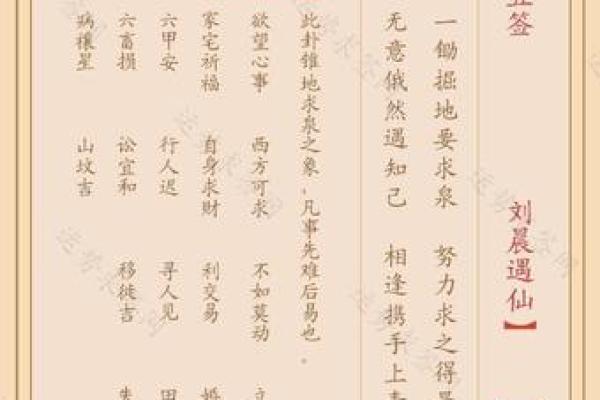 签 刘晨遇仙】
一锄掘地要求泉 努力求之得
无意俄然遇知己 相逢携手上
此卦锥地求泉之象，凡事先难后易也。
欲望心事 西方可求 不如莫动
家宅祈福 自身求财 利交易
六甲安 行人迟 寻人见
六畜损 讼宜和 移徒吉
病禳星 山坟吉
运势求签网